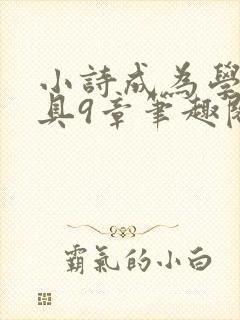 小詩成為學
具9章筆趣閣
霸氣的小白